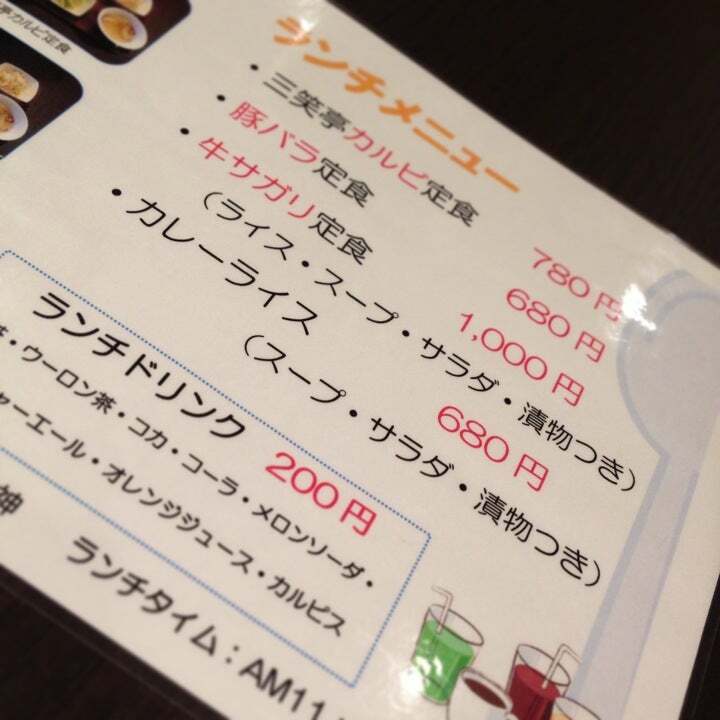 亭カルビ定食
ランチメニュー
・三笑亭カルビ定食 780円
・豚バラ定食 680円
・牛サガリ定食 1,000円
(ライス・スープ・サラダ・漬物つき)
・カレーライス 680円
(スープ・サラダ・漬物つき)
ランチドリンク 200円
茶・ウーロン茶・コカ・コーラ・メロンソーダ・
ャーエール・オレンジジュース・カルピス
ランチタイム:AM11